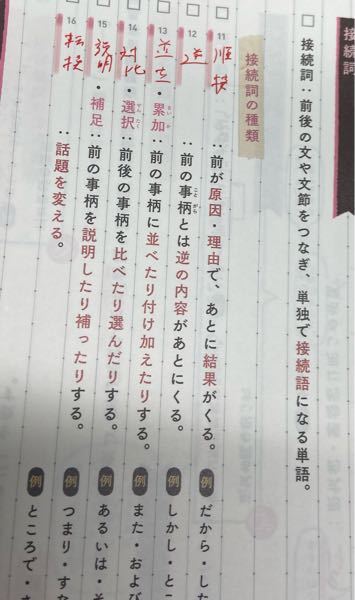 接続詞
接続詞：前後の文や文節をつなぎ、単独で接続語になる単語。
接続詞の種類
11 順接：前が原因・理由で、あとに結果がくる。 例 だから・した
12 逆：前の事柄とは逆の内容があとにくる。 例 しかし・とこ
13 並立・累加：前の事柄に並べたり付け加えたりする。 例 また・およ
14 対比・選択：前後の事柄を比べたり選んだりする。 例 あるいは・そ
15 説明・補足：前の事柄を説明したり補ったりする。 例 つまり・すな
16 転換：話題を変える。 例 ところで・さ